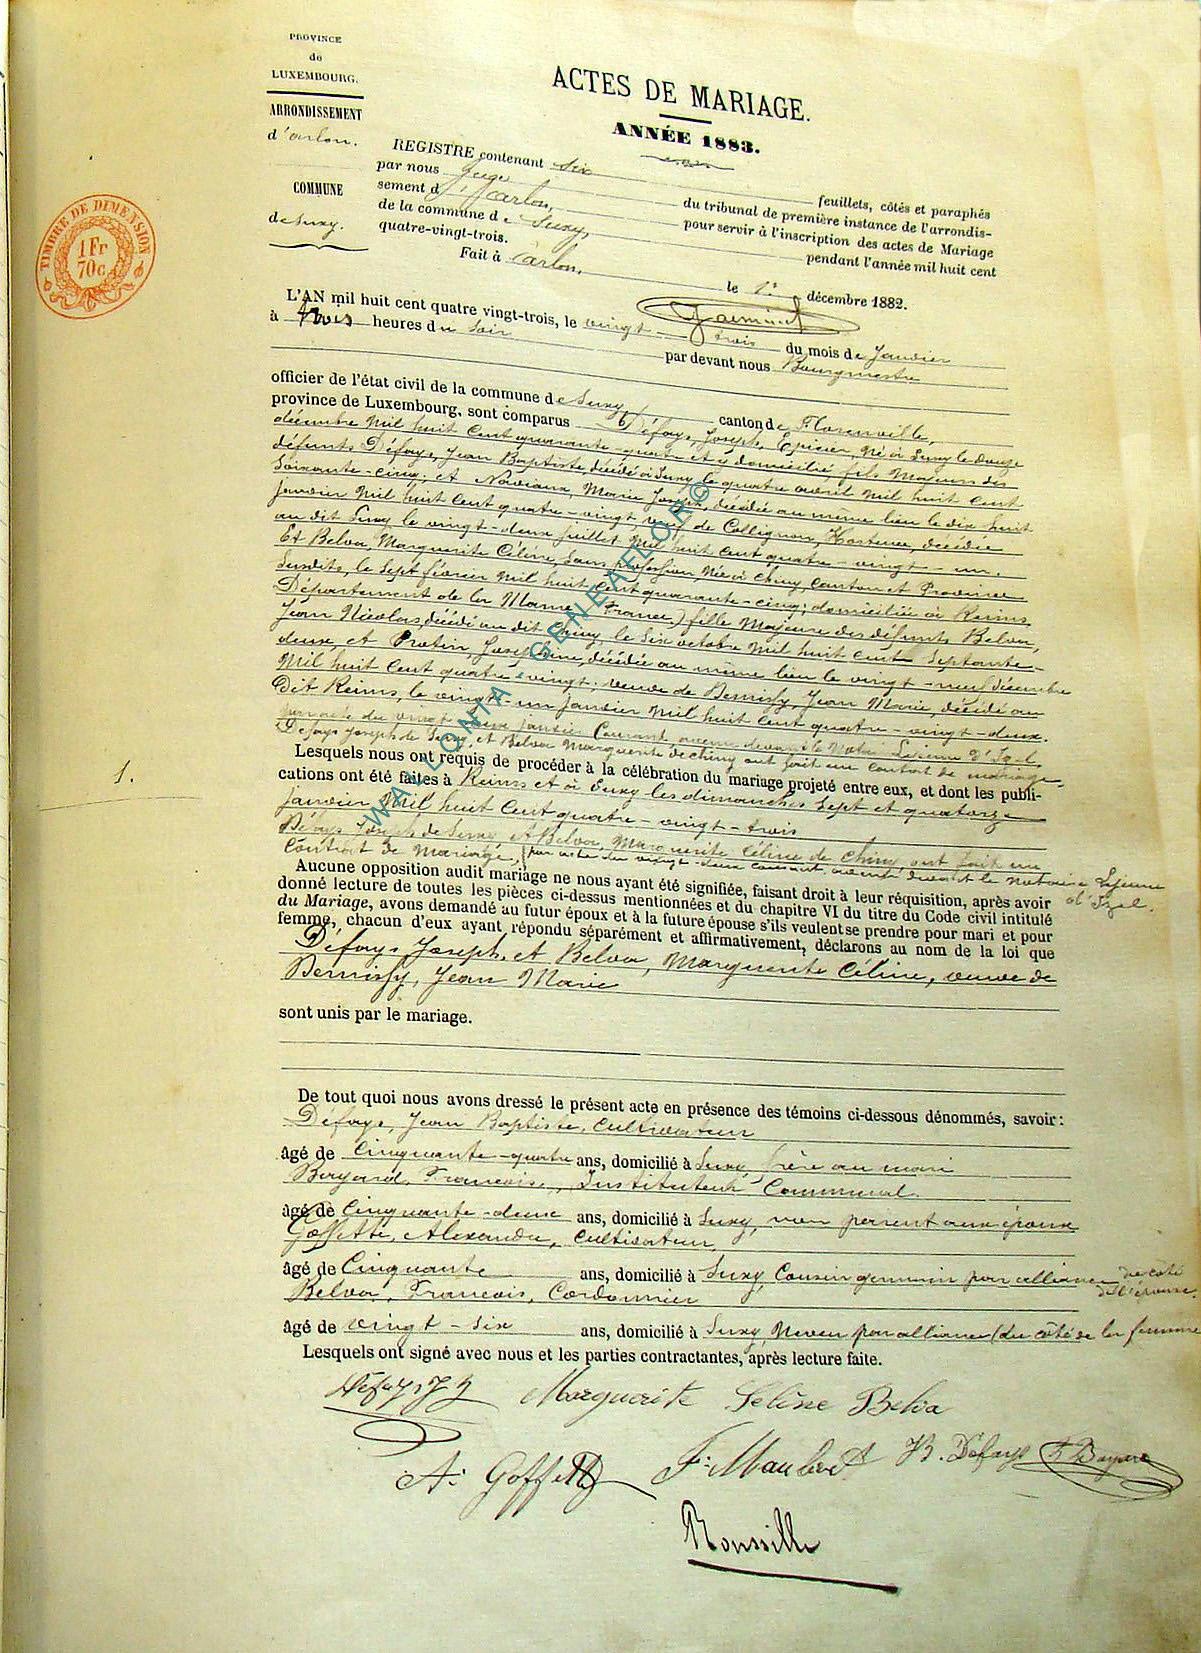 PROVINCE
de
LUXEMBOURG.
ARRONDISSEMENT
d'arlon.
COMMUNE
de Suxy.
TIMBRE DE DIMENSION
1 Fr
70c
ACTES DE MARIAGE.
ANNÉE 1883.
REGISTRE contenant six feuillets, côtés et paraphés
par nous Juge du tribunal de première instance de l'arrondis-
sement d'Arlon, pour servir à l'inscription des actes de Mariage
de la commune de Suxy, pendant l'année mil huit cent
quatre-vingt-trois.
Fait à Arlon, le 1er décembre 1882.
L'AN mil huit cent quatre vingt-trois, le vingt trois du mois de Janvier
à trois heures du soir par devant nous Bourgmestre
officier de l'état civil de la commune de Suxy canton de Florenville,
province de Luxembourg, sont comparus Défays, Joseph, Epicier, Né à Suxy le douze
décembre Mil huit Cent quarante-quatre et y domicilié, fils Majeur des
défunts Défays, Jean Baptiste, décédé à Suxy le quatre avril Mil huit Cent
Soixante-cinq; et Noviaux, Marie Joseph, décédée au même lieu le dix-huit
Janvier Mil huit Cent quatre-vingt, veuf de Collignon, Hortense, décédée
au dit Suxy le vingt-deux juillet Mil huit Cent quatre-vingt-un.
Et Belva, Marguerite Céline, Sans profession, Née à Chiny, Canton et Province
Susdits, le Sept février Mil huit Cent quarante-cinq; domiciliée à Reims,
Département de la Marne (France) fille Majeure des défunts Belva,
Jean Nicolas, décédé au dit Chiny, le Six octobre Mil huit Cent Septante-
deux, et Protin, Joséphine, décédée au même lieu le vingt-neuf décembre
Mil huit Cent quatre-vingt; veuve de Bemissy, Jean Marie, décédé au
Dit Reims, le vingt-un Janvier Mil huit Cent quatre-vingt-deux.
du vingt deux Janvier Courant, avenu devant le Notaire Lejeune d'Izel,
Défays Joseph de Suxy, et Belva Marguerite de Chiny ont fait un Contrat de mariage
Lesquels nous ont requis de procéder à la célébration du mariage projeté entre eux, et dont les publi-
cations ont été faites à Reims et à Suxy les dimanches Sept et quatorze
Janvier Mil huit Cent quatre-vingt-trois
Défays Joseph de Suxy et Belva, Marguerite Céline de Chiny, ont fait un
Contrat de Mariage, par acte du vingt-deux courant, avenu devant le notaire Lejeune
d'Izel.
Aucune opposition audit mariage ne nous ayant été signifiée, faisant droit à leur réquisition, après avoir
donné lecture de toutes les pièces ci-dessus mentionnées et du chapitre VI du titre du Code civil intitulé
du Mariage, avons demandé au futur époux et à la future épouse s'ils veulent se prendre pour mari et pour
femme, chacun d'eux ayant répondu séparément et affirmativement, déclarons au nom de la loi que
Défays Joseph, et Belva, Marguerite Céline, veuve de
Bemissy, Jean Marie
sont unis par le mariage.
1.
De tout quoi nous avons dressé le présent acte en présence des témoins ci-dessous dénommés, savoir:
Défays, Jean Baptiste, Cultivateur
âgé de Cinquante-quatre ans, domicilié à Suxy, frère au mari
Bayard, François, Instituteur Communal.
âgé de Cinquante-deux ans, domicilié à Suxy, non parent aux époux
Goffette, Alexandre, Cultivateur,
âgé de Cinquante ans, domicilié à Suxy, Cousin germain par alliance du côté
de l'épouse.
Belva, François, Cordonnier
âgé de vingt-six ans, domicilié à Suxy, Neveu par alliance (du côté de la femme
Lesquels ont signé avec nous et les parties contractantes, après lecture faite.
Défays J Marguerite Céline Belva
A. Goffette F. Maubert B. Défays F Bayard
Roussille
WALLONIA GENEAFLOR©